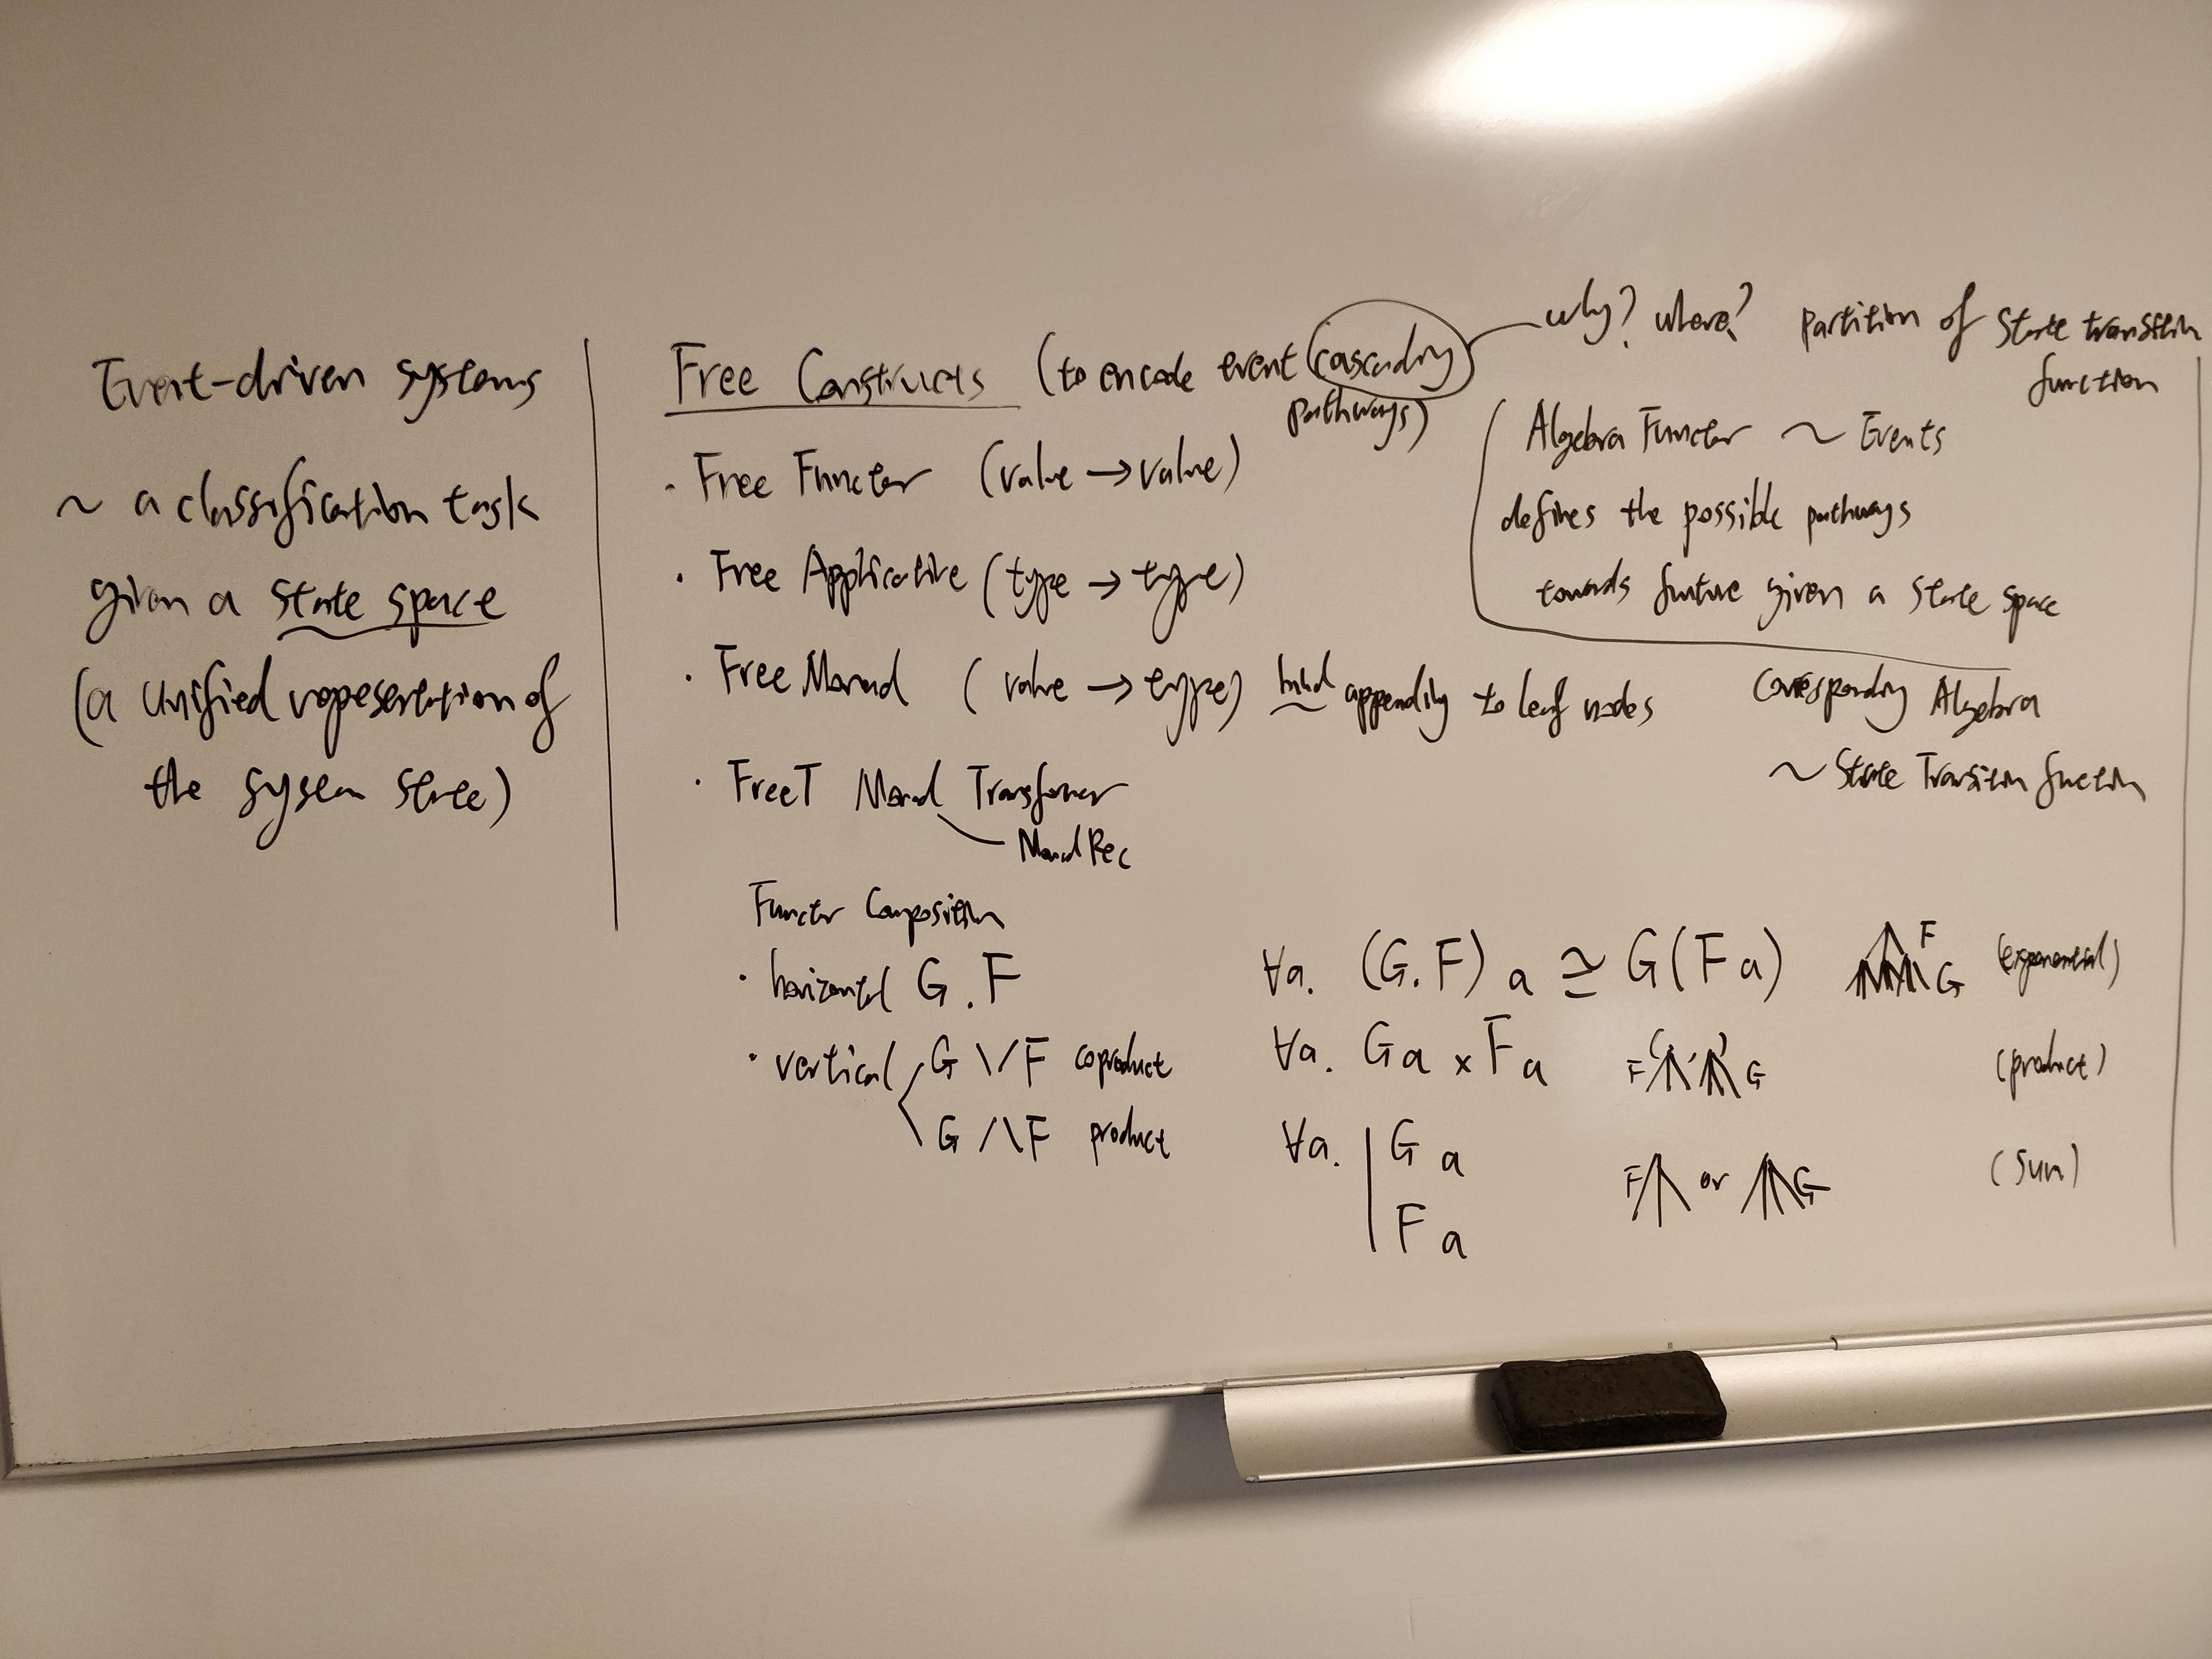 Event-driven systems
~ a classification task
given a state space
(a unified repesentation of
the sysem state)
Free Constructs (to encode event cascading
pathways)
why? where? partition of state transition
function
· Free Functor (value → value)
· Free Applicative (type → type)
· Free Monad (value → type) bind appending to leaf nodes
· FreeT Monad Transformer
MonadRec
Algebra Functor ~ Events
defines the possible pathways
towards furture given a state space
Corresponding Algebra
~ State Transition function
Functor Composition
· horizontal G . F
∀a. (G.F) a ≃ G(F a)
F
G
(exponential)
· vertical G \/ F coproduct
∀a. G a × F a
F
G
(product)
G /\ F product
∀a. | G a
F a
F or G
(sum)